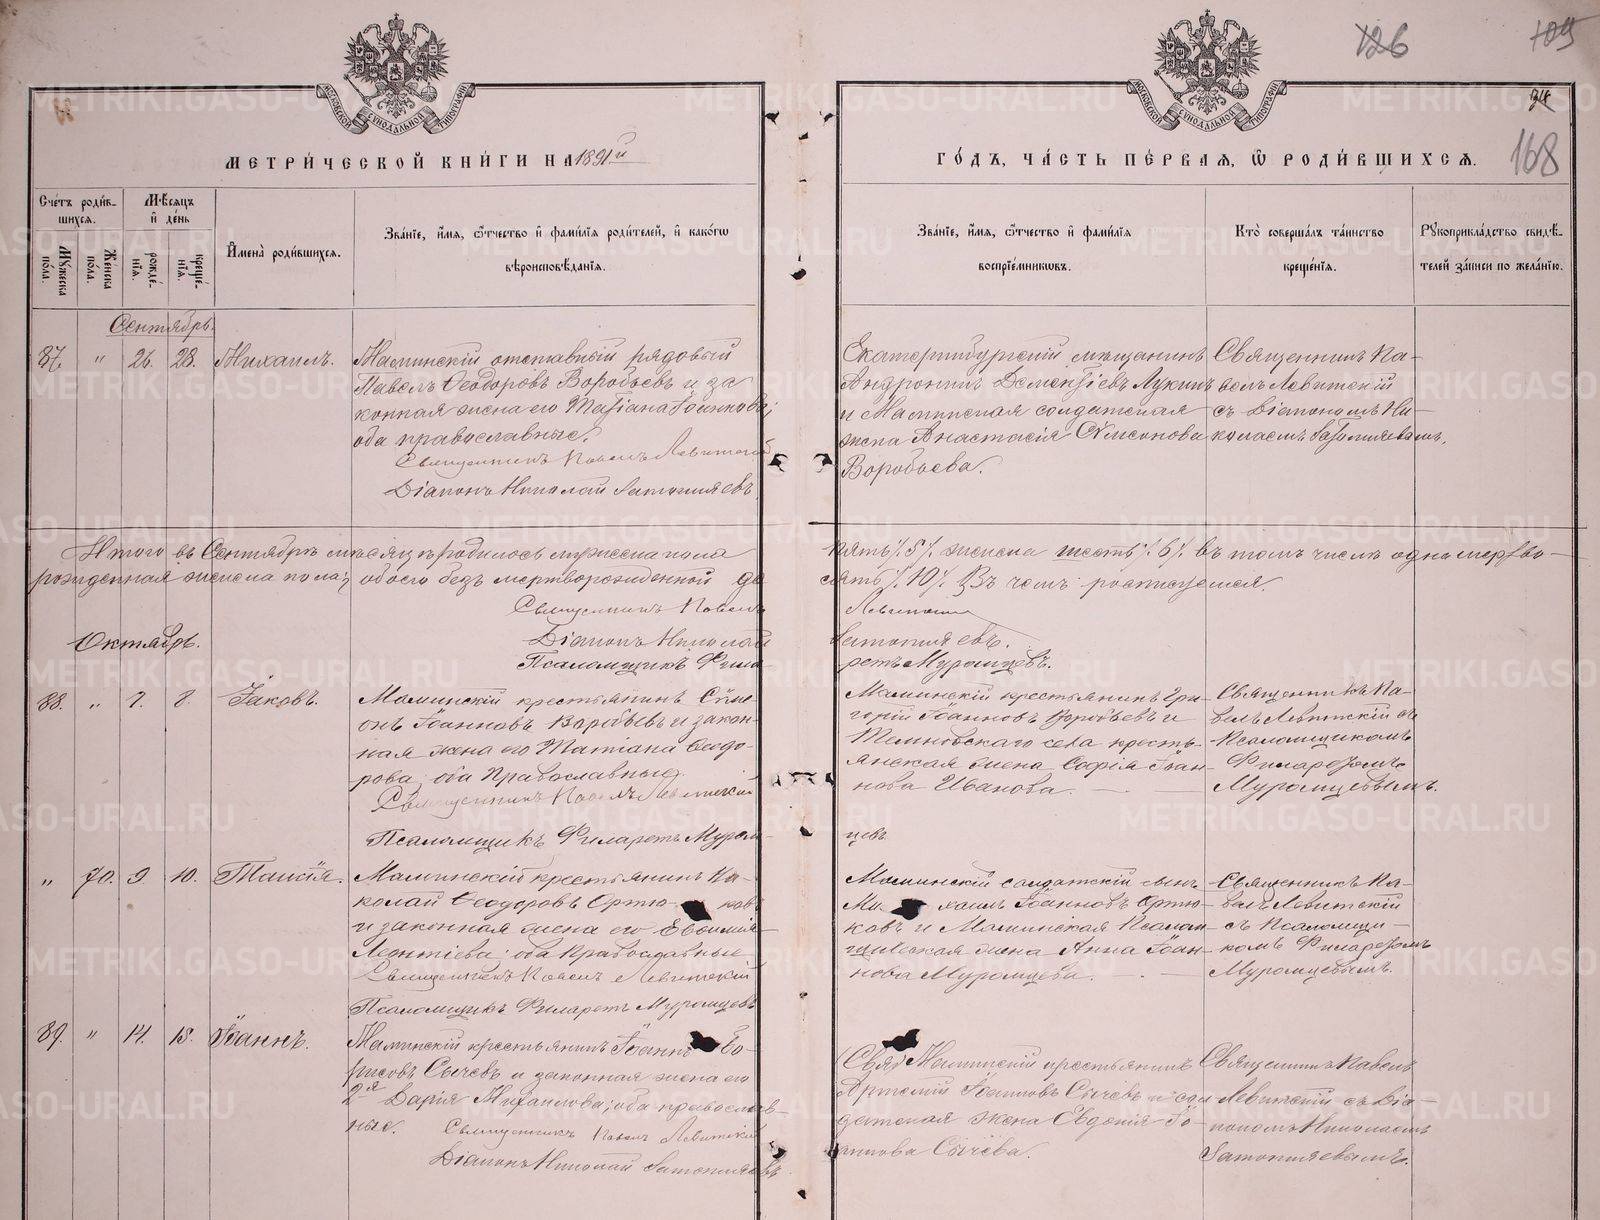 126
109
94
168
МОСКОВСКОЙ СѴНОДАЛЬНОЙ ТИПОГРАФІИ
МОСКОВСКОЙ СѴНОДАЛЬНОЙ ТИПОГРАФІИ
МЕТРИ́ЧЕСКОЙ КНИ́ГИ НА 1891й
ГО́ДЪ, ЧА́СТЬ ПЕ́РВАЯ, Ѡ РОДИ́ВШИХСЯ.
Сче́тъ роди́в-
шихся.
Му́жеска по́ла.
Же́нска по́ла.
Мѣ́сяцъ и де́нь
рожде́-
нія.
креще́-
нія.
И҆мена̀ роди́вшихся.
Зва́ніе, и҆́мя, ѻ҆́тчество и҆ фами́лія роди́телей, и҆ како́гѡ
вѣроисповѣ́данія.
Зва́ніе, и҆́мя, ѻ҆́тчество и҆ фами́лія
воспріе́мниковъ.
Кто̀ соверша́лъ та́инство
креще́нія.
Рꙋкоприкла́дство свидѣ́-
телей за́писи по жела́нію.
Сентябрь.
87. " 26. 28. Михаилъ.
Маминскій отставный рядовый
Павелъ Ѳеодоровъ Воробьевъ и за
конная жена его Татіана Іоаннова;
оба православные.
Священникъ Павелъ Левитскій
Діаконъ Николай Затопляевъ.
Екатеринбургскій мѣщанинъ
Андроникъ Дементіевъ Лукинъ
и Маминская солдатская
жена Анастасія
Воробьева.
Священникъ Па-
велъ Левитскій
съ Діакономъ Ни-
колаемъ Затопляевымъ.
Итого въ Сентябрѣ мѣсяцѣ родилось мужеска пола пять /5/ женска шесть /6/ въ томъ числѣ одна мертво-
рожденная женска пола; обоего безъ мертворожденной де сять /10/ Въ чемъ росписуемся.
Священникъ Павелъ Левитскій
Діаконъ Николай Затопляевъ.
Псаломщикъ Фила ретъ Муромцевъ.
Октябрь.
88. " 7. 8. Іаковъ.
Маминскій крестьянинъ Сѵме-
онъ Іоанновъ Воробьевъ и закон-
ная жена его Татіана Ѳеодо-
рова; оба Православные.
Священникъ Павелъ Левитскій
Псаломщикъ Филаретъ Муром-
цевъ
Маминскій крестьянинъ Гри-
горій Іоанновъ Воробьевъ и
Темновскаго села кресть-
янская жена Софія Іоан-
нова Иванова.
Священникъ Па-
велъ Левитскій съ
Псаломщикомъ
Филаретомъ
Муромцевымъ.
" 70. 9. 10. Таисія.
Маминскій крестьянинъ Ни-
колай Ѳеодоровъ Ортю- ковъ
и законная жена его Евфимія
Леонтіева; оба Православные
Священникъ Павелъ Левитскій
Псаломщикъ Филаретъ Муромцевъ
Маминскій солдатскій сынъ
Ми- хаилъ Іоанновъ Ортю-
ковъ и Маминская Псалом-
щическая жена Анна Іоан-
нова Муромцева.
Священникъ Па-
велъ Левитскій
съ Псаломщи-
комъ Филаретомъ
Муромцевымъ.
89. " 14. 15. Іоаннъ.
Маминскій крестьянинъ Іоаннъ Бо-
рисовъ Сычевъ и законная жена его
2я Дарія Михаилова; оба православ-
ные.
Священникъ Павелъ Левитскій
Діаконъ Николай Затопляевъ
Маминскій крестьянинъ
Артемій Іоанновъ Сычевъ и сол
датская жена Евдокія Іо-
аннова Сычева.
Священникъ Павелъ
Левитскій съ Діа-
кономъ Николаемъ
Затопляевымъ.
METRIKI.GASO-URAL.RU